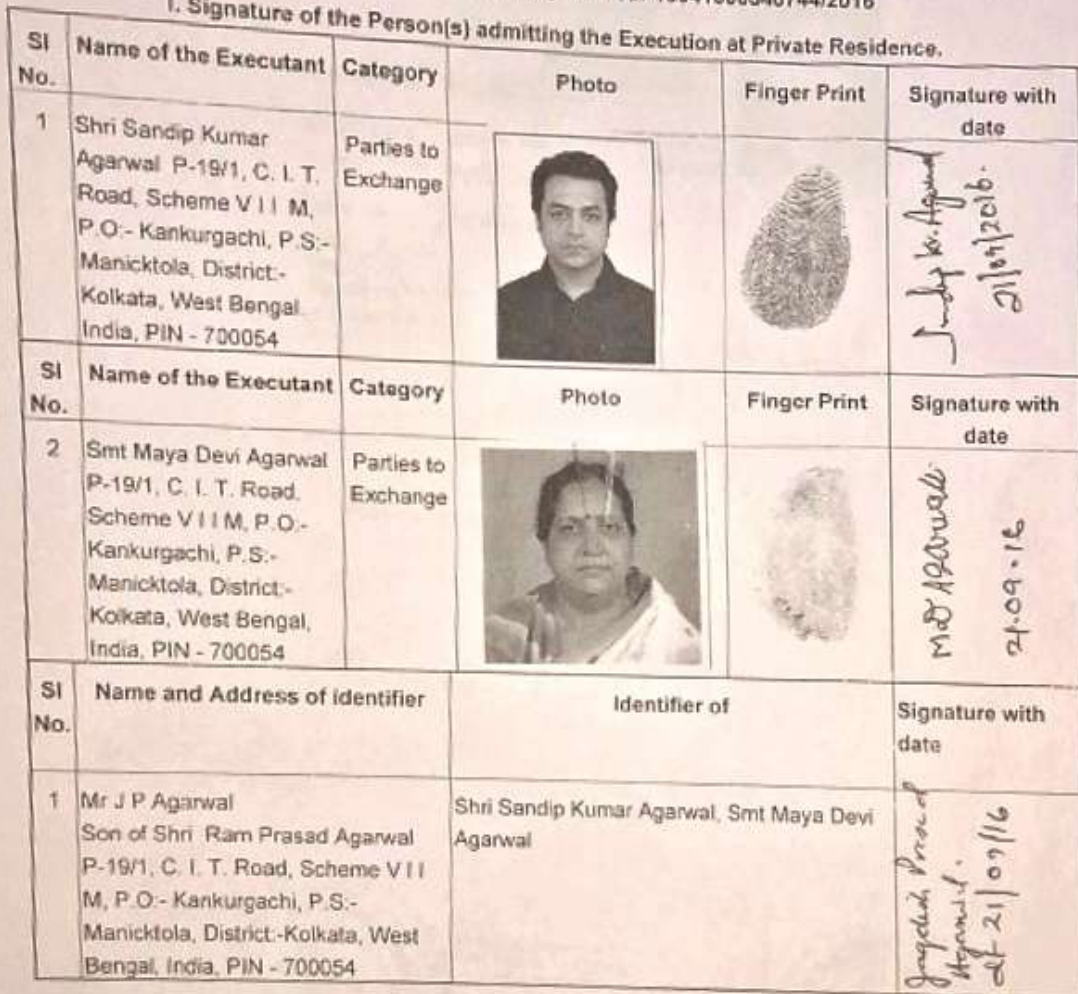 I. Signature of the Person(s) admitting the Execution at Private Residence.
Sl No. Name of the Executant Category Photo Finger Print Signature with date
1
Shri Sandip Kumar
Agarwal P-19/1, C. I. T.
Road, Scheme V I I M,
P.O:- Kankurgachi, P.S:-
Manicktola, District:-
Kolkata, West Bengal
India, PIN - 700054
Parties to
Exchange
21/09/2016.
Sl No. Name of the Executant Category Photo Finger Print Signature with date
2
Smt Maya Devi Agarwal
P-19/1, C. I. T. Road,
Scheme V I I M, P.O:-
Kankurgachi, P.S:-
Manicktola, District:-
Kolkata, West Bengal,
India, PIN - 700054
Parties to
Exchange
MD Agarwal
21.09.16
Sl No. Name and Address of identifier Identifier of Signature with date
1
Mr J P Agarwal
Son of Shri Ram Prasad Agarwal
P-19/1, C. I. T. Road, Scheme V I I
M, P.O:- Kankurgachi, P.S:-
Manicktola, District:-Kolkata, West
Bengal, India, PIN - 700054
Shri Sandip Kumar Agarwal, Smt Maya Devi
Agarwal
Jagdish Prasad
Agarwal.
dt 21/09/16